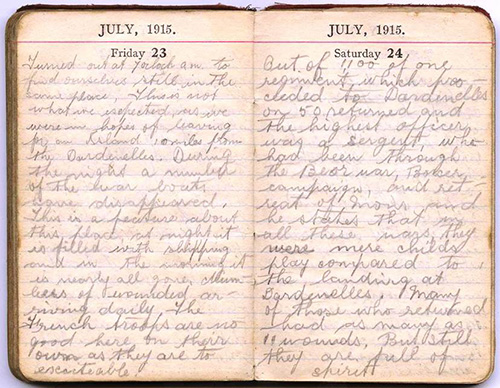 JULY, 1915.
Friday 23
Turned out at 7oclock am to
find ourselves still in the
same place. This is not
what we expected, as we
were in hopes of leaving
for an Island 10 miles from
the Dardenelles. During
the night a number
of the war boats
have disappeared.
This is a feature about
this place, at night it
is filled with shipping
and in the morning it
is nearly all gone, Num-
bers of wounded ar-
riving daily. The
French troops are no
good here on their
own as they are to
exciteable.
JULY, 1915.
Saturday 24
Out of 1100 of one
regiment which proc-
cleded to Dardenelles
on 50 returned and
the highest officer,
was a sergent, who
had been through
the Boer war, Boxer
campaign, and ret-
reat of Mons and
he states that in
all these wars, they
were mere childs
play compared to
the landing at
Dardenelles. Many
of those who returned
had as many as
11 wounds, But still
they are full of
spirit